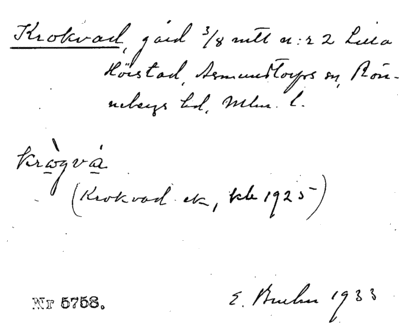 Krokvad, gård 3/8 mtl n:r 2 Lilla
Hörstad, Asmundtorps sn, Rön-
nebergs hd, Mlm. l.
kràgvá
(Krokvad ek, kb 1925)
Nr 5758.
E. 1933